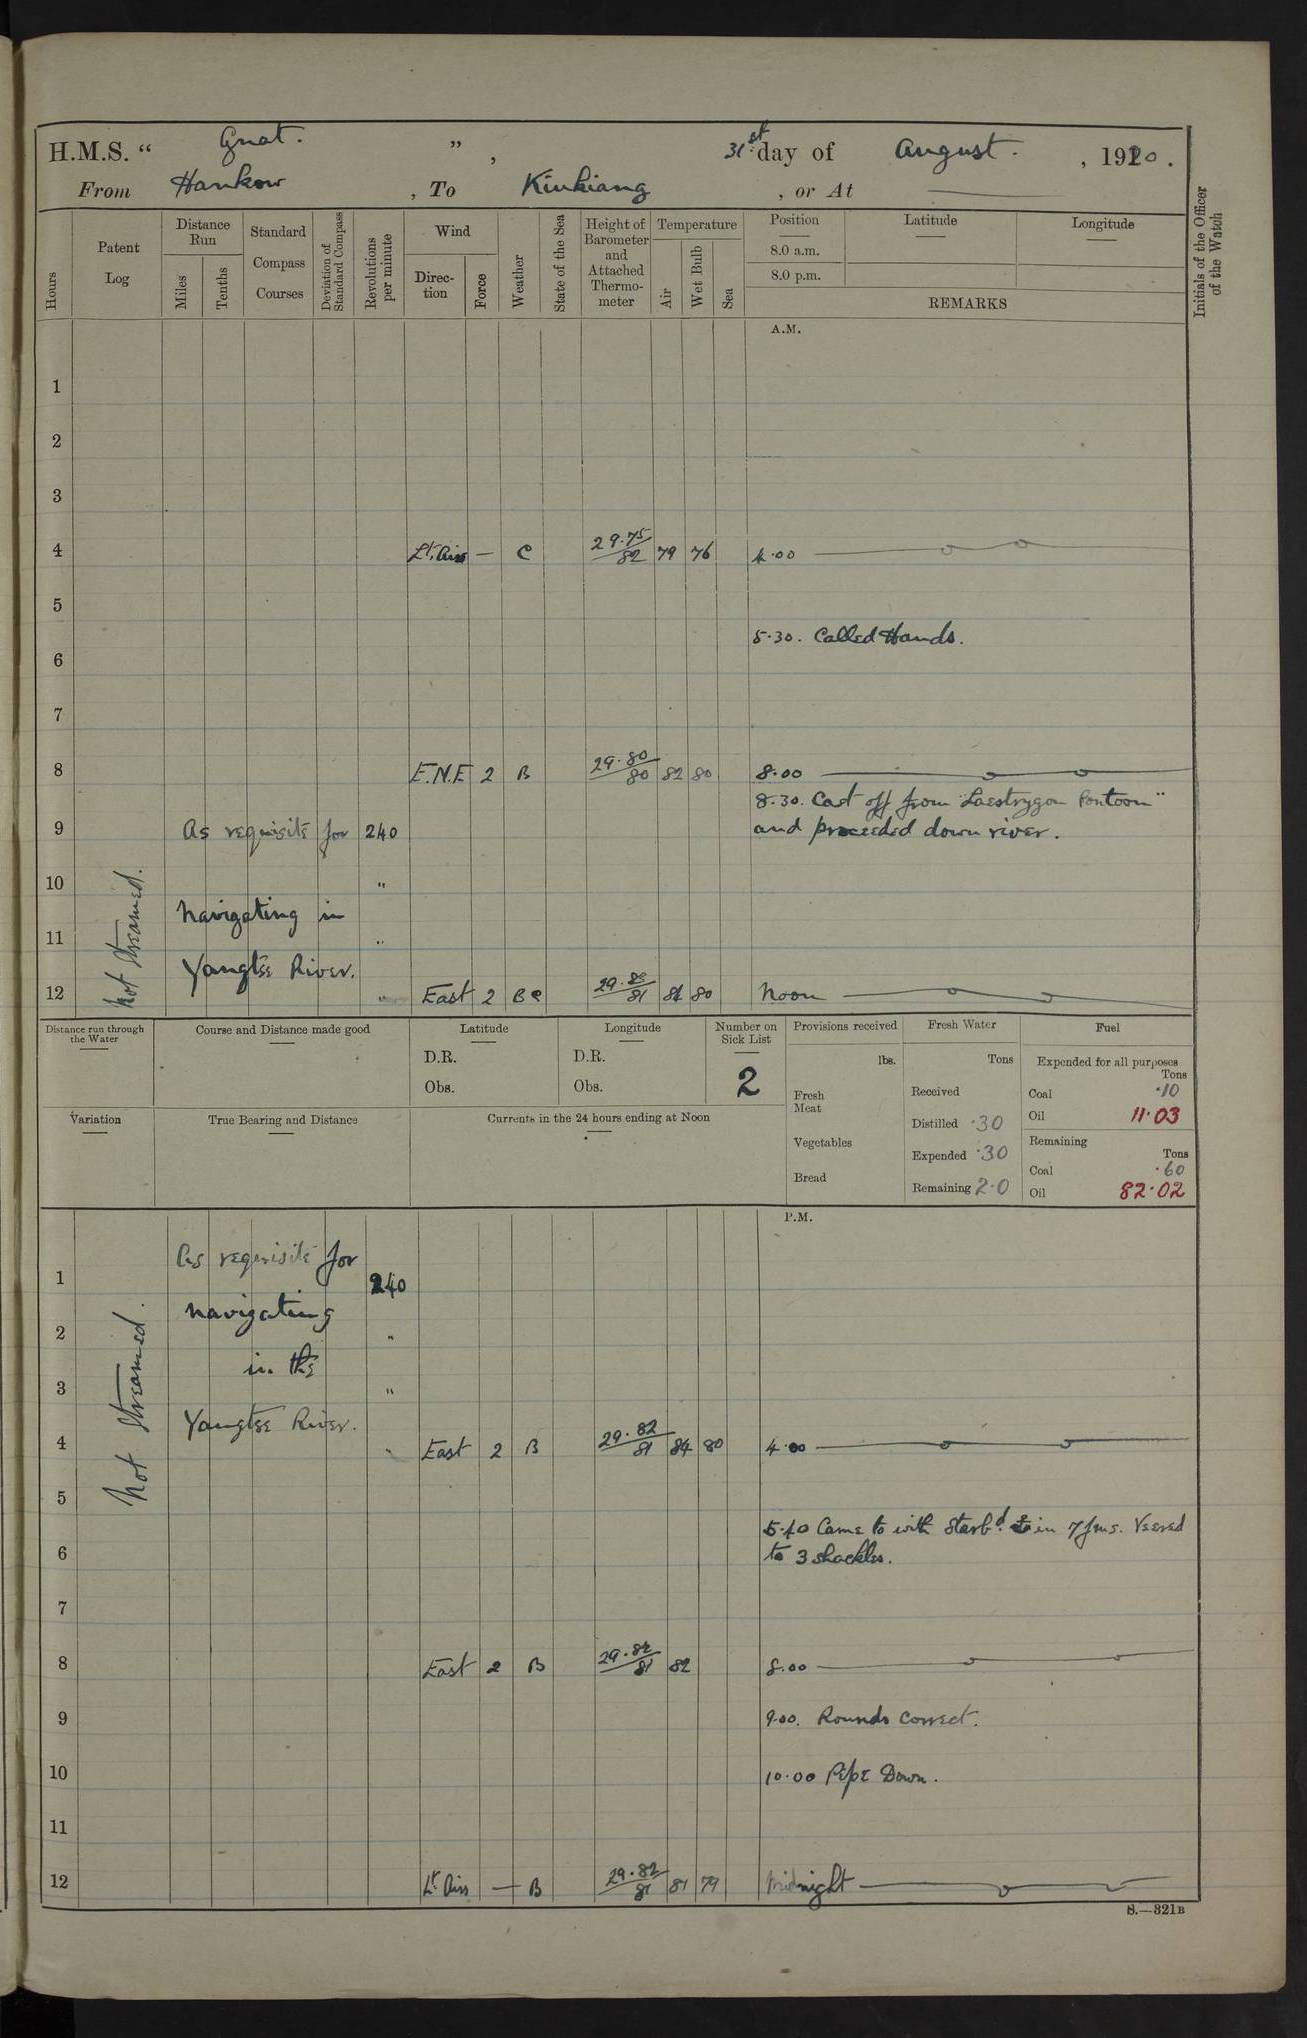 H.M.S. “ Gnat. ” , 31st day of August. , 1920.
From Hankow , To Kiukiang , or At
Hours
Patent Log
Distance Run
Miles
Tenths
Standard Compass Courses
Deviation of Standard Compass
Revolutions per minute
Wind
Direction
Force
Weather
State of the Sea
Height of Barometer and Attached Thermometer
Temperature
Air
Wet Bulb
Sea
Position
8.0 a.m.
8.0 p.m.
Latitude
Longitude
REMARKS
Initials of the Officer of the Watch
A.M.
1
2
3
4 Lt. Airs — C 29.75/82 79 76 4.00
5
5.30. Called Hands.
6
7
8 E.N.E 2 B 29.80/80 82 80 8.00
8.30. Cast off from "Laestrygon Pontoon"
9 As requisite for 240 and proceeded down river.
10 "
Not Streamed.
navigating in
11 "
Yangtse River.
12 " East 2 BC 29.82/81 84 80 Noon
Distance run through the Water
Course and Distance made good
Latitude
D.R.
Obs.
Longitude
D.R.
Obs.
Number on Sick List
2
Provisions received
lbs.
Fresh Meat
Vegetables
Bread
Fresh Water
Tons
Received
Distilled .30
Expended .30
Remaining 2.0
Fuel
Expended for all purposes
Tons
Coal .10
Oil 11.03
Remaining
Tons
Coal .60
Oil 82.02
Variation
True Bearing and Distance
Currents in the 24 hours ending at Noon
P.M.
As requisite for
1 240
navigating
2 "
in the
3 "
Yangtse River.
Not Streamed.
4 " East 2 B 29.82/81 84 80 4.00
5
5.40 Came to with Starbd. in 7 fms. Veered
6 to 3 shackles.
7
8 East 2 B 29.82/81 82 8.00
9 9.00. Rounds Correct.
10 10.00 Pipe Down.
11
12 Lt. Airs — B 29.82/81 81 79 Midnight
S.—321B